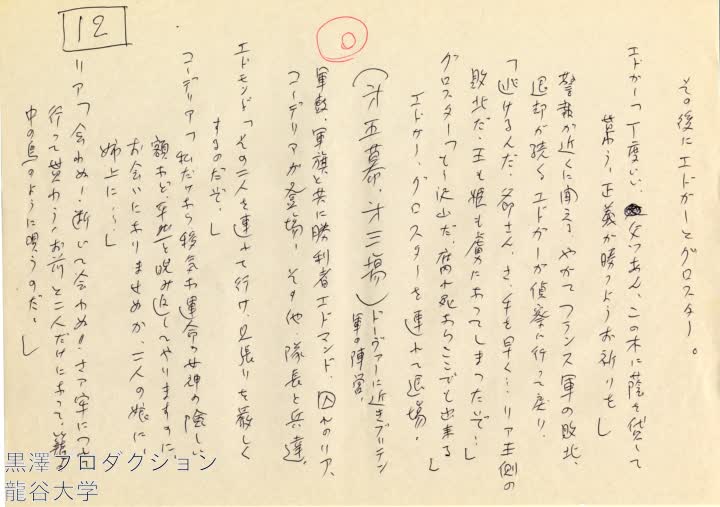 12
その後にエドガーとグロスター。
エドガー「丁度いい、父つあん、この木に蔭を貸して
貰わう、正義が勝つようお祈りを」
警報が近くに聞え、やがてフランス軍の敗北、
退却が続く、エドガーが偵察に行って戻り、
「逃げるんだ、爺さん、さ、手を早く…リア王側の
敗北だ、王も姫も虜になってしまったぞ…」
グロスター「もう沢山だ、腐れ死ならここでも出来る」
エドガー、グロスターを連れて退場。
(才五幕・才三場)ドーヴァーに近きブリテン
軍の陣営。
軍鼓、軍旗と共に勝利者エドマンド、囚れのリア、
コーデリアが登場、その他、隊長と兵達。
エドモンド「その二人を連れて行け、見張りを厳しく
するのだぞ」
コーデリア「私だけなら移気な運命の女神の険しい
額など、平気で睨み返してやりますのに、
お会いになりませぬか、二人の娘に、
姉上に…」
リア「会わぬ!断じて会わぬ!さア牢につれて
行って貰わう、お前と二人だけになって、籠の
中の鳥のように唄うのだ。」
黒澤プロダクション
龍谷大学